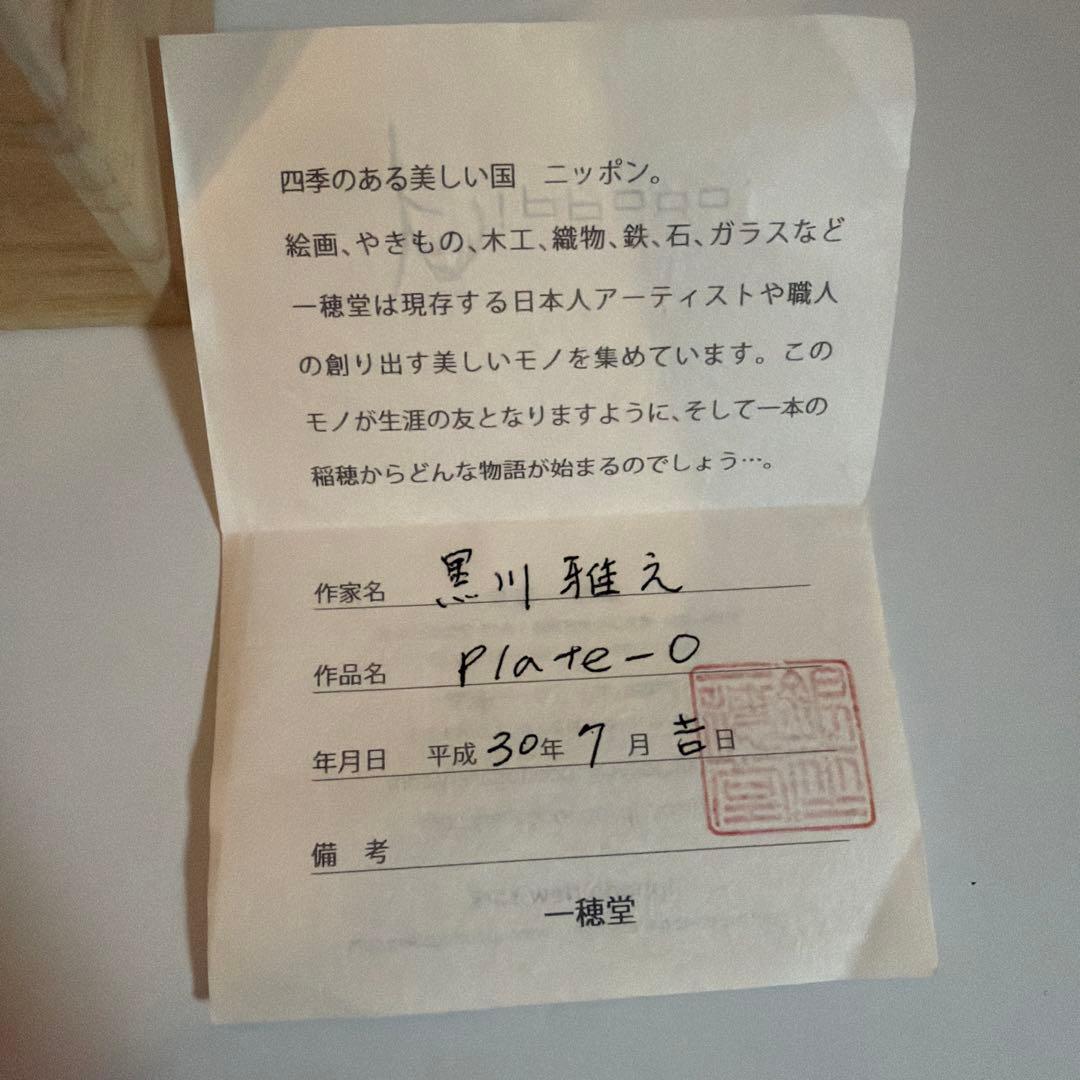 四季のある美しい国　ニッポン。
絵画、やきもの、木工、織物、鉄、石、ガラスなど
一穂堂は現存する日本人アーティストや職人
の創り出す美しいモノを集めています。この
モノが生涯の友となりますように、そして一本の
稲穂からどんな物語が始まるのでしょう…。
作家名 黒川雅之
作品名 Plate-O
年月日 平成30年7月吉日
備 考
一穂堂